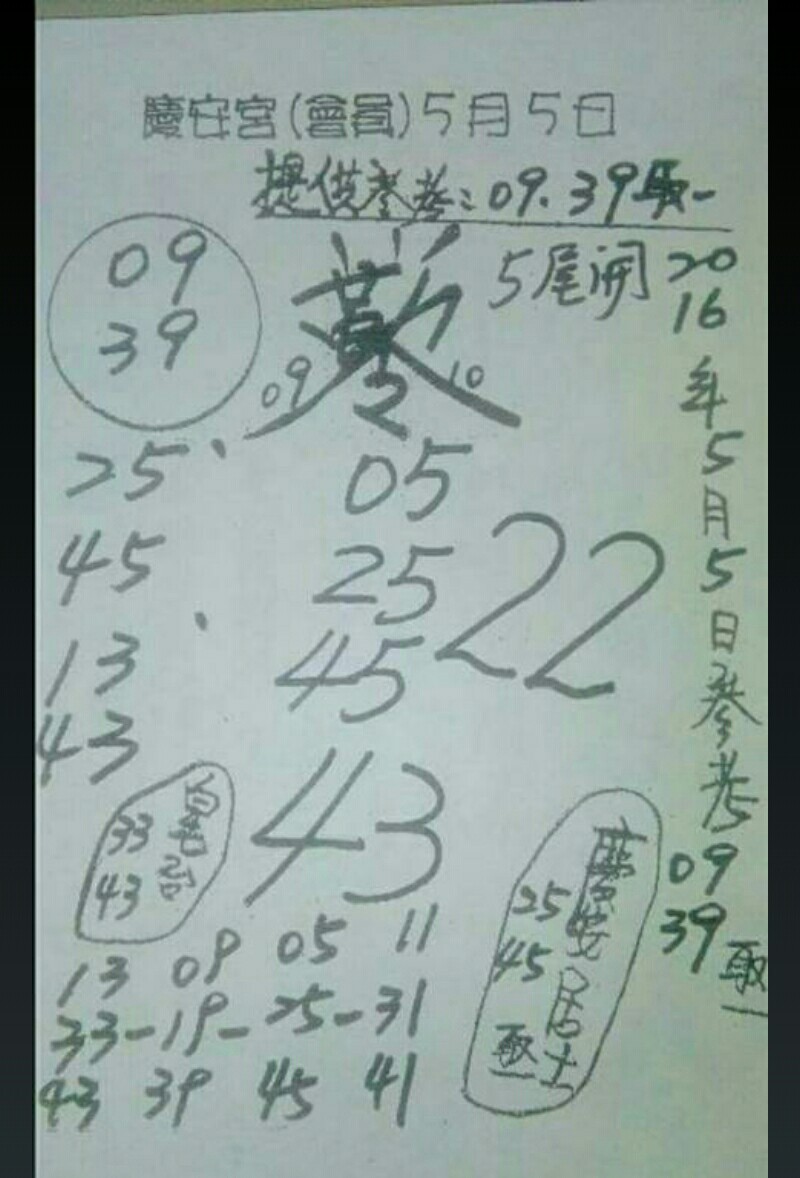 慶安宮(會員)5月5日
提供参考:09.39取一
09
39
09 10
5尾開
25、
45
13、
43
05
25
45
22
43
33
43
13 09 05 11
33-19-25-31
43 39 45 41
慶安居士
25
45
取一
2016年5月5日参考
09
39
取一